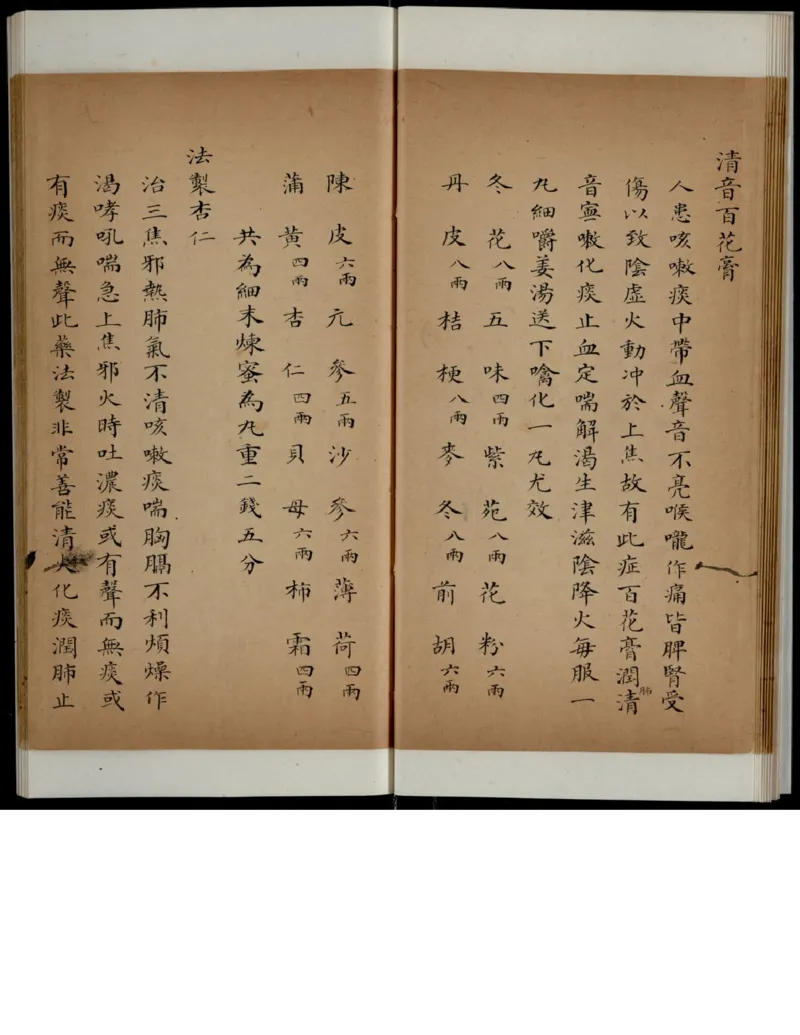 清音百花膏
人患咳嗽痰中帶血聲音不亮喉嚨作痛皆脾腎受
傷以致陰虛火動冲於上焦故有此症百花膏潤肺清
音寧嗽化痰止血定喘解渴生津滋陰降火每服一
丸細嚼姜湯送下噙化一丸尤效
冬花八兩五味四兩紫苑八兩花粉六兩
丹皮八兩桔梗八兩麥冬八兩前胡六兩
陳皮六兩元參五兩沙參六兩薄荷四兩
蒲黄四兩杏仁四兩貝母六兩柿霜四兩
共為細末煉蜜為丸重二錢五分
法製杏仁
治三焦邪熱肺氣不清咳嗽痰喘胸膈不利煩燥作
渴哮吼喘急上焦邪火時吐濃痰或有聲而無痰或
有痰而無聲此藥法製非常善能清火化痰潤肺止